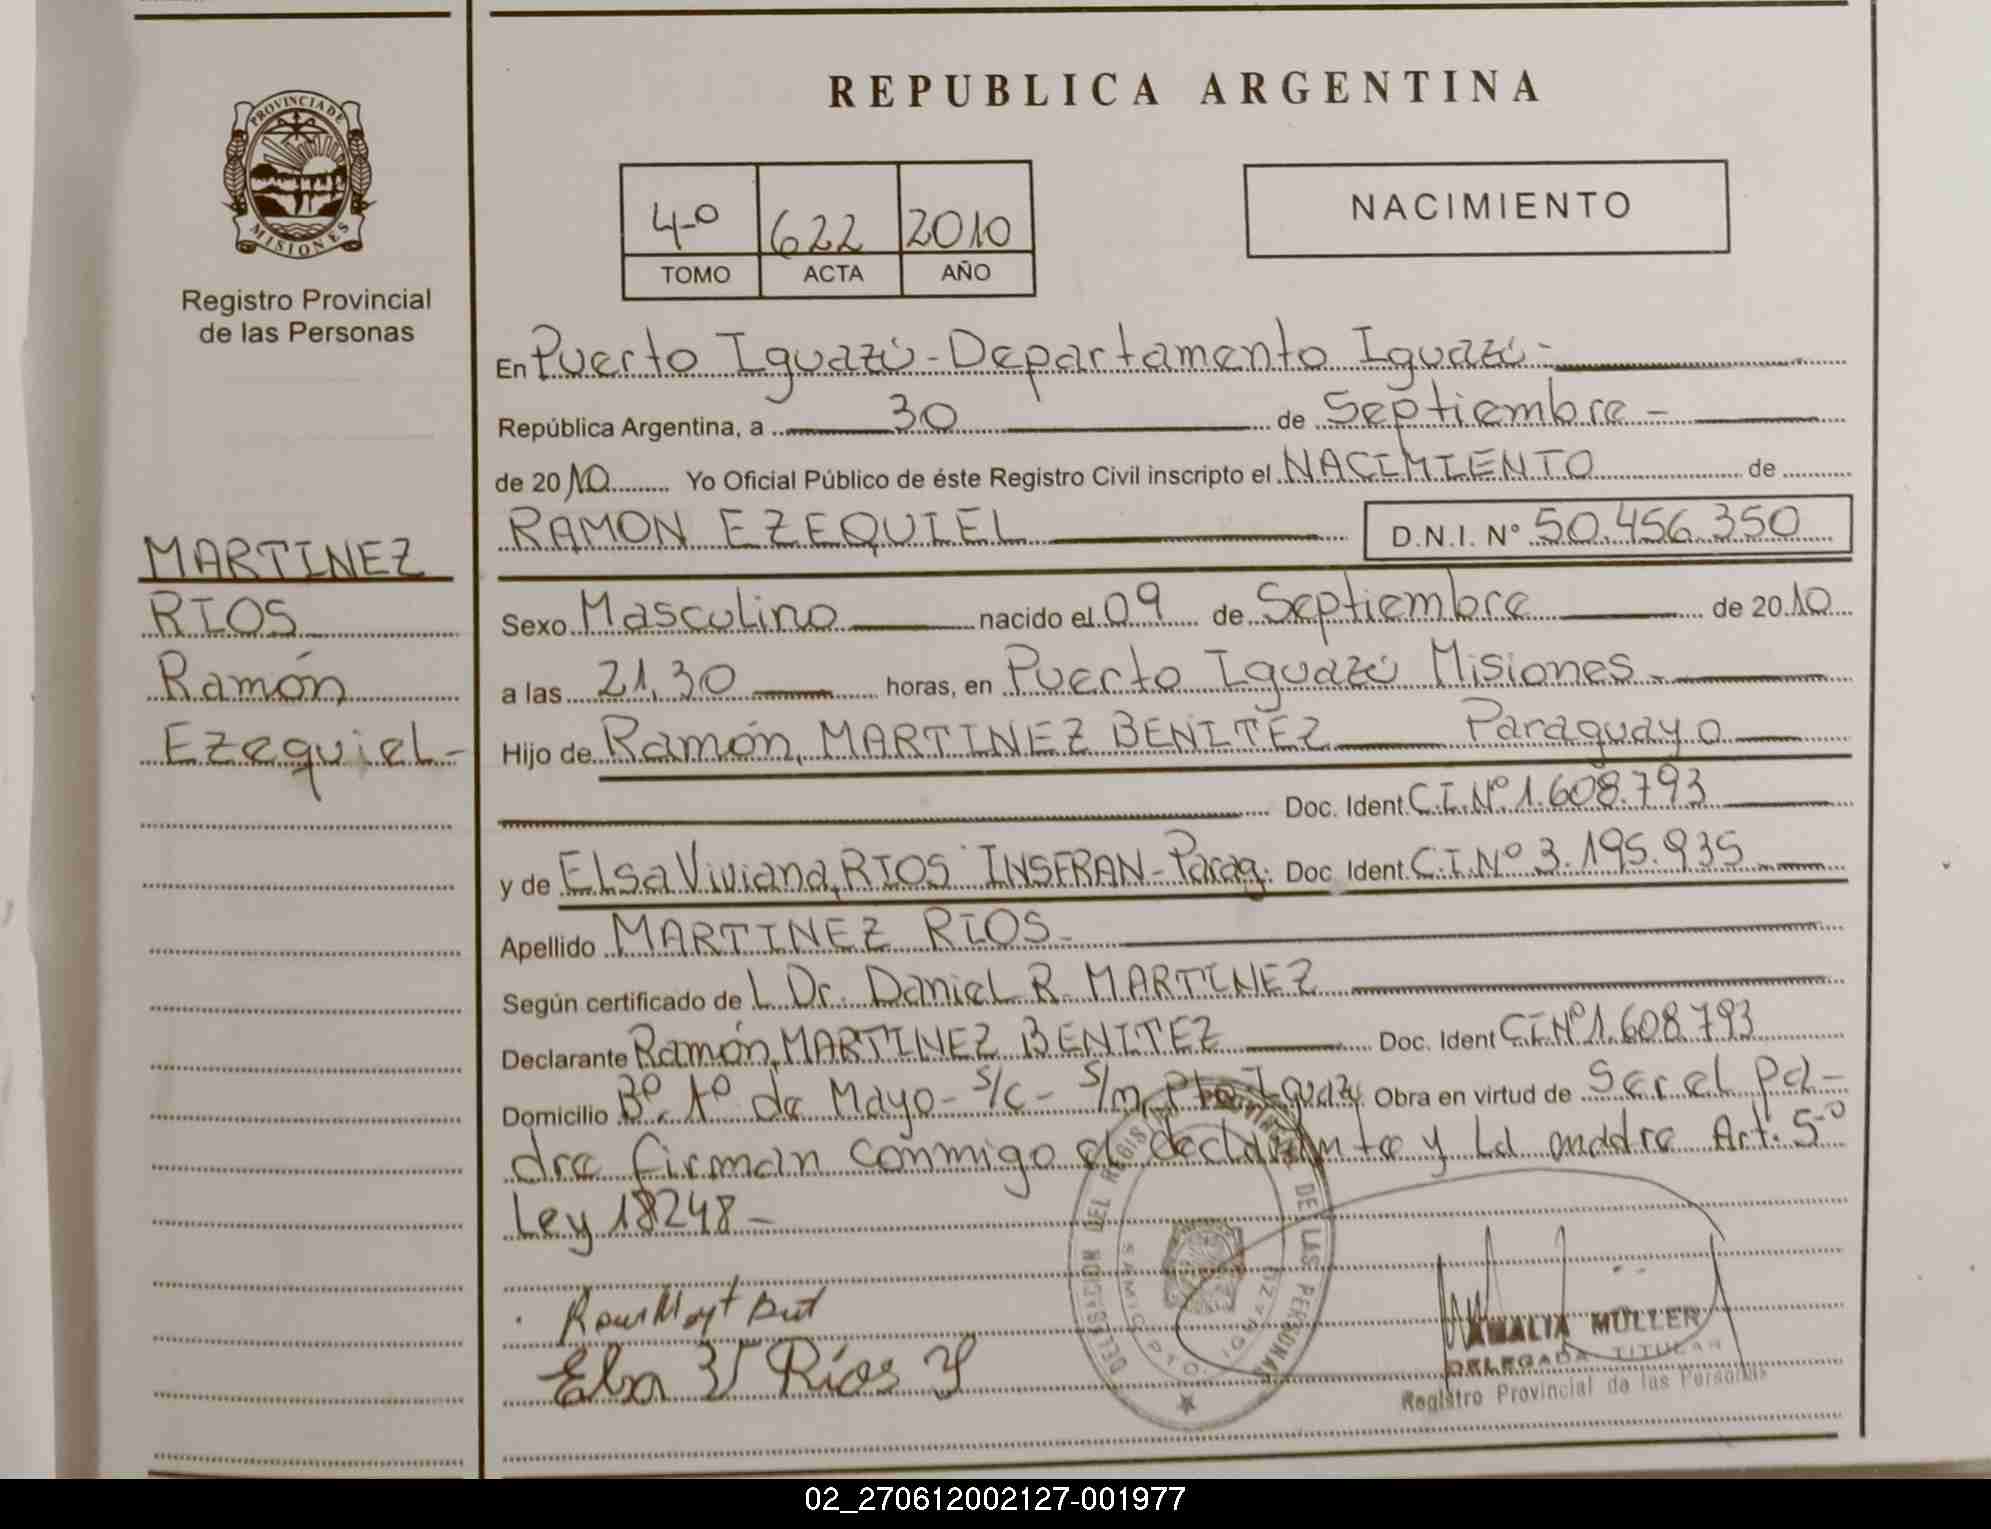 REPUBLICA ARGENTINA
PROVINCIA DE
MISIONES
Registro Provincial
de las Personas
4º 622 2010
TOMO ACTA AÑO
NACIMIENTO
En Puerto Iguazú - Departamento Iguazú -
República Argentina, a 30 de Septiembre -
de 2010 Yo Oficial Público de éste Registro Civil inscripto el NACIMIENTO de
RAMON EZEQUIEL D.N.I. Nº 50.456.350
MARTINEZ
RIOS
Ramón
Ezequiel -
Sexo Masculino nacido el 09 de Septiembre de 2010
a las 21,30 horas, en Puerto Iguazú Misiones -
Hijo de Ramón, MARTINEZ BENITEZ Paraguayo
Doc. Ident. C.I. Nº 1.608.793
y de Elsa Viviana, RIOS INSFRAN - Parag. Doc. Ident. C.I. Nº 3.195.935
Apellido MARTINEZ RIOS -
Según certificado de L Dr. Daniel R. MARTINEZ
Declarante Ramón, MARTINEZ BENITEZ Doc. Ident C.I. Nº 1.608.793
Domicilio Bº. 1º de Mayo - S/c - S/m, Pto. Iguazú Obra en virtud de Ser el Pa-
dre firman conmigo el declarante y La madre Art. 5º
Ley 18248 -
Elsa V Ríos
DELEGACION DEL REGISTRO PROVINCIAL DE LAS PERSONAS
AMALIA MULLER
DELEGADA TITULAR
Registro Provincial de las Personas
02_270612002127-001977